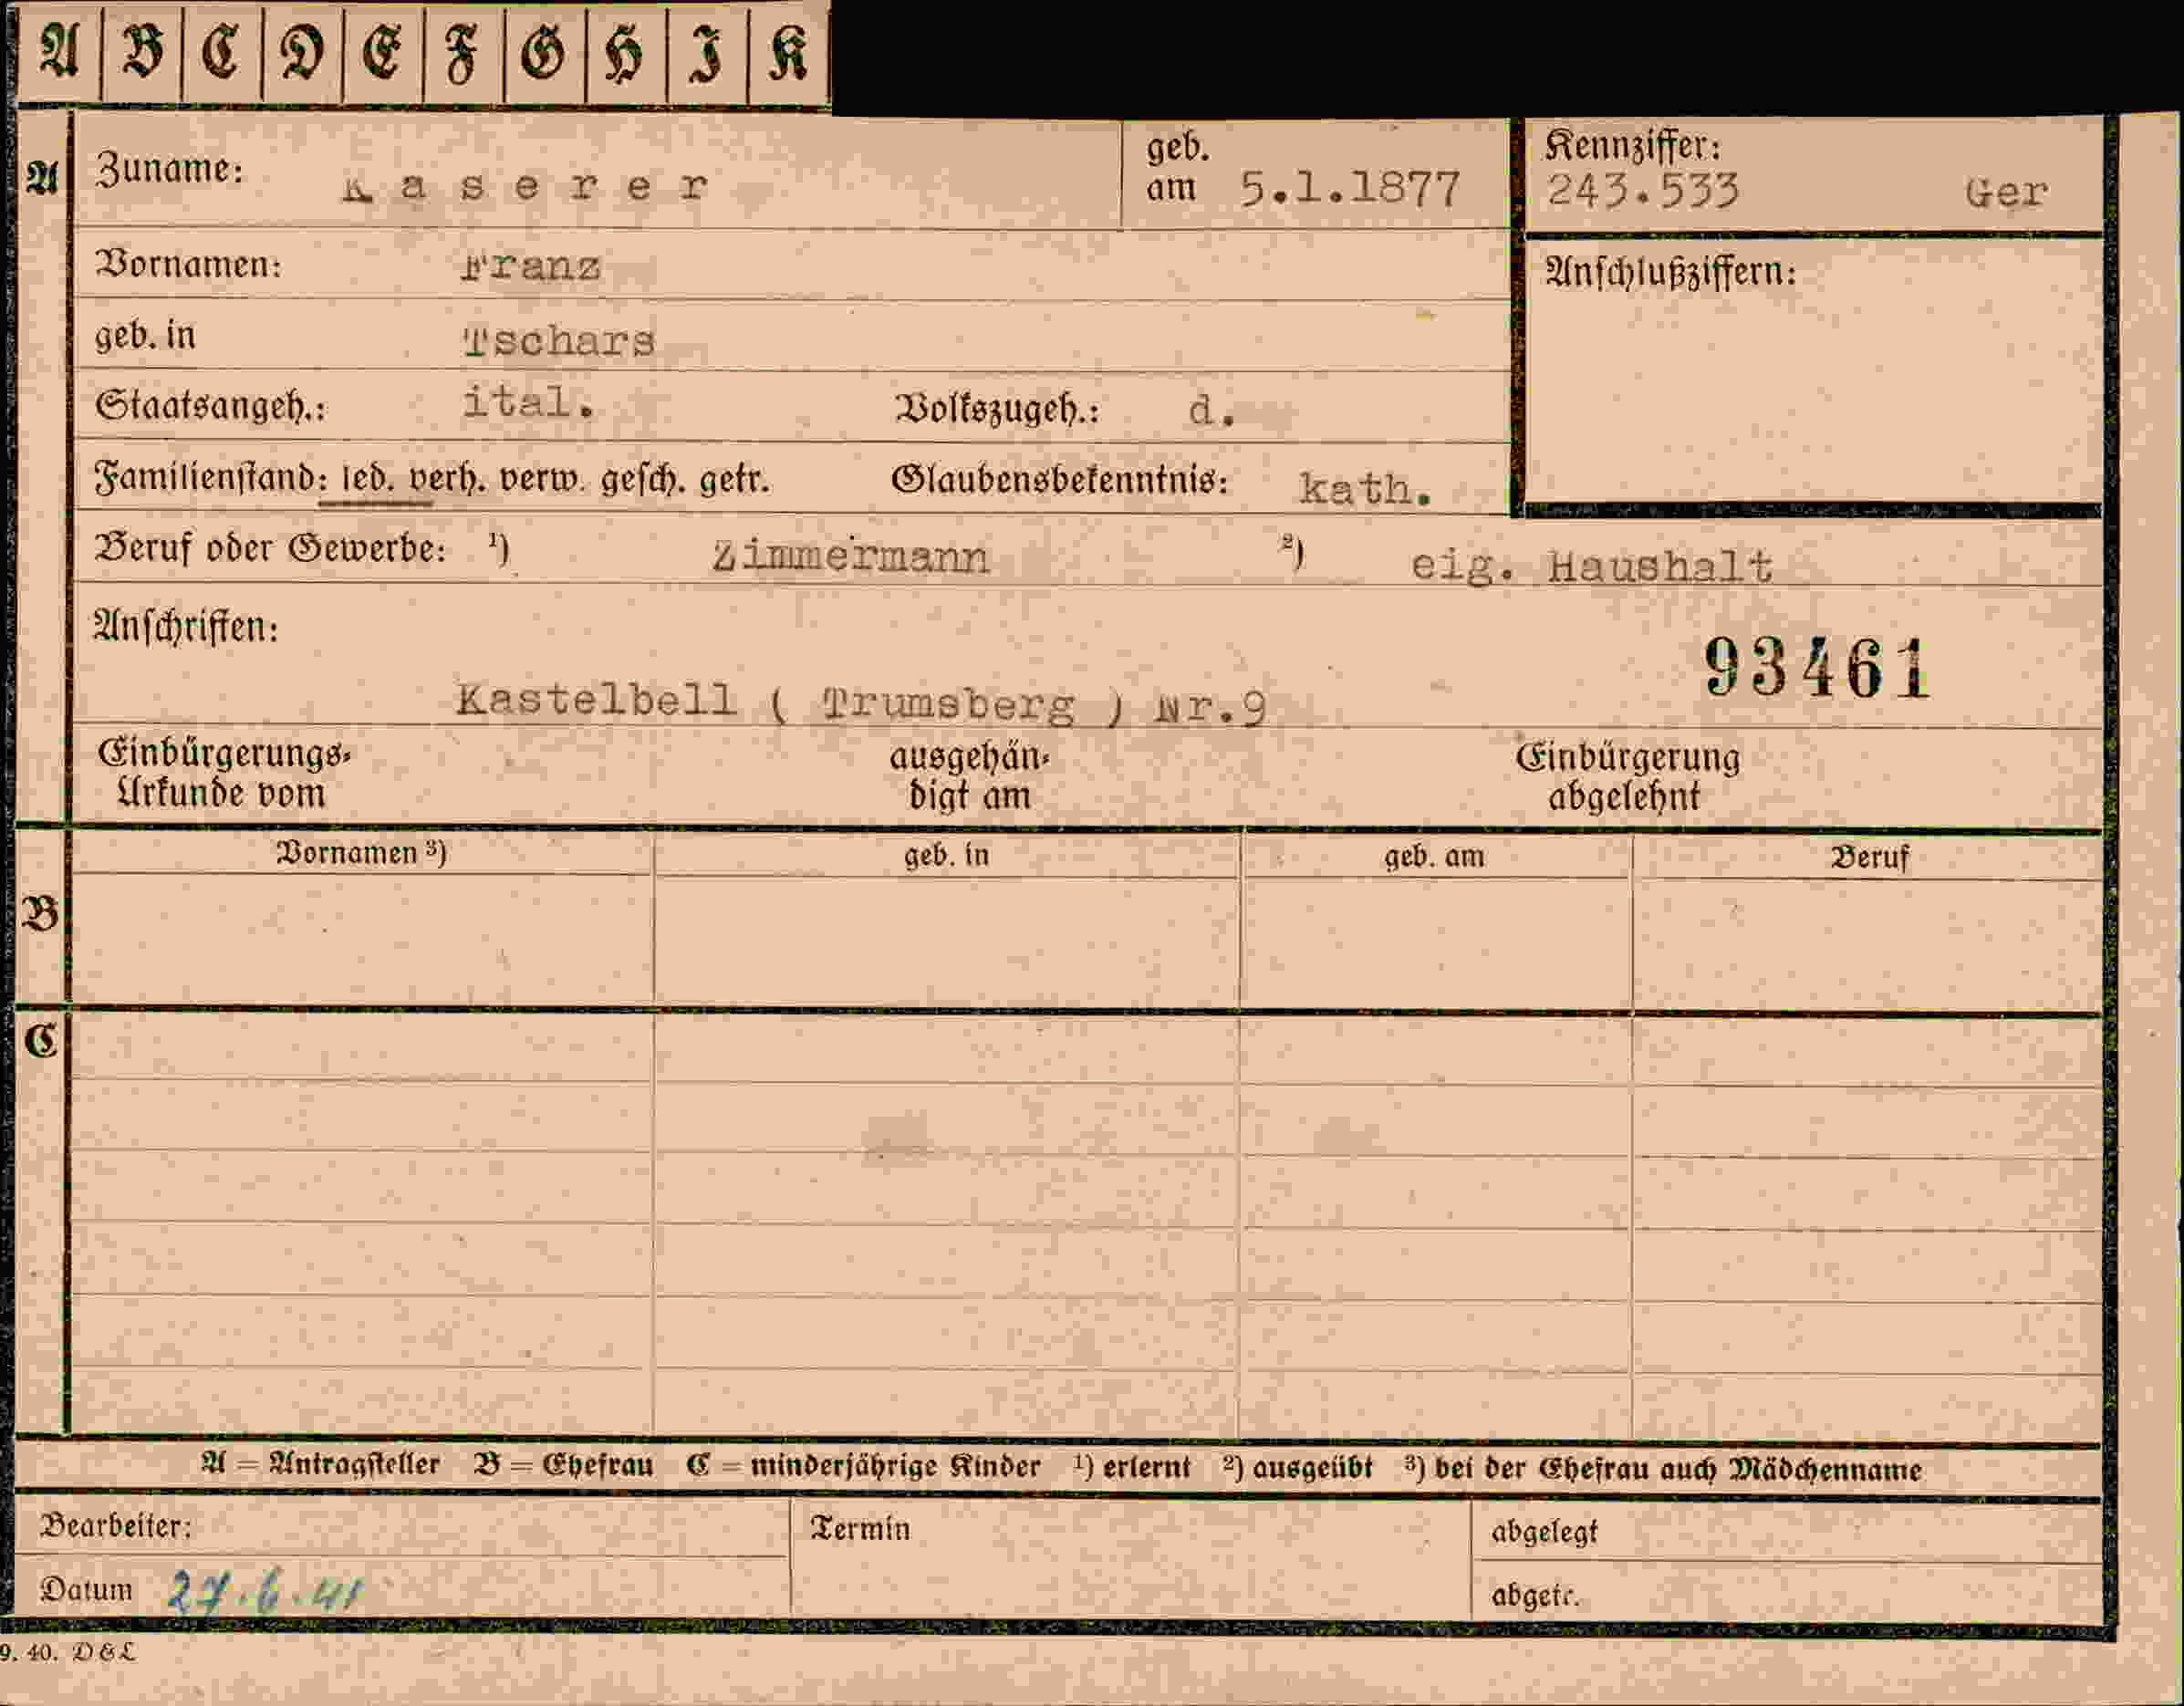 A B C D E F G H I K
A Zuname: Kaserer geb. am 5.1.1877 Kennziffer: 243.533 Ger
Vornamen: Franz Anschlußziffern:
geb. in Tschars
Staatsangeh.: ital. Volkszugeh.: d.
Familienstand: led. verh. verw. gesch. getr. Glaubensbekenntnis: kath.
Beruf oder Gewerbe: ¹) Zimmermann ²) eig. Haushalt
Anschriften:
93461
Kastelbell ( Trumsberg ) Nr.9
Einbürgerungs- ausgehän- Einbürgerung
Urkunde vom digt am abgelehnt
Vornamen ³) geb. in geb. am Beruf
B
C
A = Antragsteller B = Ehefrau C = minderjährige Kinder ¹) erlernt ²) ausgeübt ³) bei der Ehefrau auch Mädchenname
Bearbeiter: Termin abgelegt
Datum 27.6.41 abgetr.
9. 40. D&L